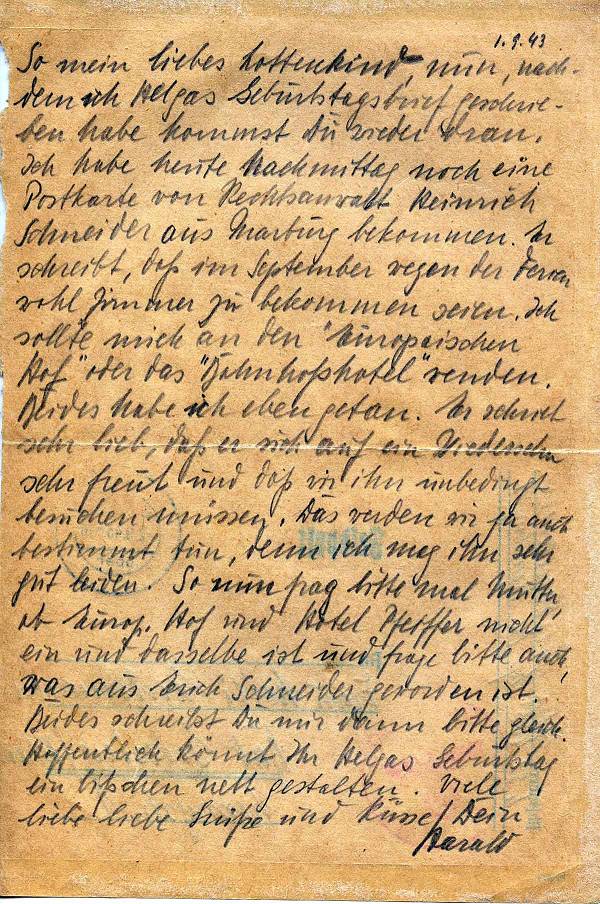 1.9.43
So mein liebes Lottenkind, nun, nach-
dem ich Helgas Geburtstagsbrief geschrie-
ben habe kommst Du wieder dran.
Ich habe heute Nachmittag noch eine
Postkarte von Rechtsanwalt Heinrich
Schneider aus Marburg bekommen. Er
schreibt, daß im September wegen der Ferien
wohl Zimmer zu bekommen seien. Ich
sollte mich an den "Europäischen
Hof" oder das "Bahnhofshotel" wenden.
Beides habe ich eben getan. Er schrieb
sehr lieb, daß er sich auf ein Wiedersehn
sehr freut und daß wir ihn unbedingt
besuchen müssen. Das werden wir ja auch
bestimmt tun, denn ich mag ihn sehr
gut leiden. So nun frag bitte mal Mutti,
ob Europ. Hof und Hotel Pfeiffer nicht
ein und dasselbe ist und frage bitte auch,
was aus Erich Schneider geworden ist.
Beides schreibst Du mir dann bitte gleich.
Hoffentlich könnt Ihr Helgas Geburtstag
ein bißchen nett gestalten. Viele
liebe liebe Grüße und Küsse! Dein
Harald